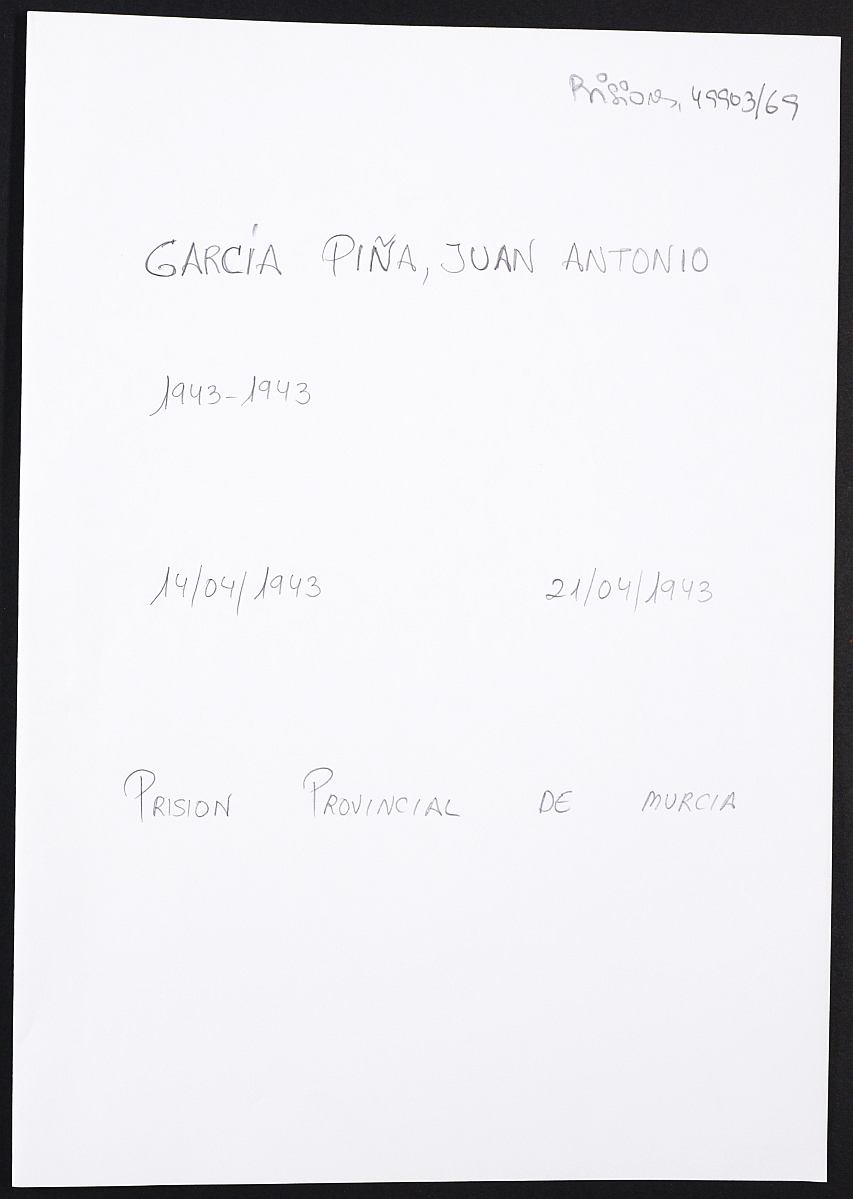 Prisiones, 49903/69
GARCÍA PIÑA, JUAN ANTONIO
1943-1943
14/04/1943 21/04/1943
PRISION PROVINCIAL DE MURCIA